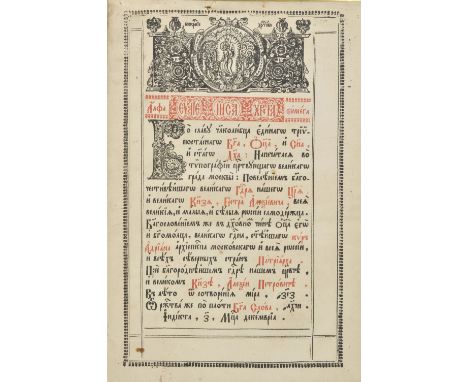 Во славꙋ единагѡ трїѵ
постаснагѡ Бг҃а, Оц҃а, и Сн҃а
и ст҃агѡ Дх҃а. Напечатасѧ во
тѵпографїи црⷭтвꙋющагѡ великагѡ
града москвы: Повелѣнїемъ бл҃го
честивѣйшагѡ великагѡ Гдⷭрѧ нашегѡ Цр҃ѧ
и великагѡ Кн҃зѧ, Петра Алеѯїевича, всеѧ
великїѧ, и малыѧ, и бѣлыѧ рѡссїи самодержца.
Бл҃гословенїемъ же въ дꙋховнѣмъ чинѣ Оц҃а егѡ
и бг҃омолца, великагѡ гдⷭина, ст҃ѣйшагѡ кѵръ
Адрїана архїеп҃кпа московскагѡ и всеѧ рѡссїи,
и всѣхъ сѣверныхъ странъ Патрїарха
При бл҃городнѣйшемъ гдⷭрѣ нашемъ цр҃евичѣ
и великомъ Кн҃зѣ, Алеѯїи Петровичѣ.
Въ лѣто ѿ сотворенїѧ мїра, ҂зсз
Ѿ рожⷭтва же по плоти Бг҃а Слова, ҂ахчи
Індїкта, з, Мцⷭа декемврїа